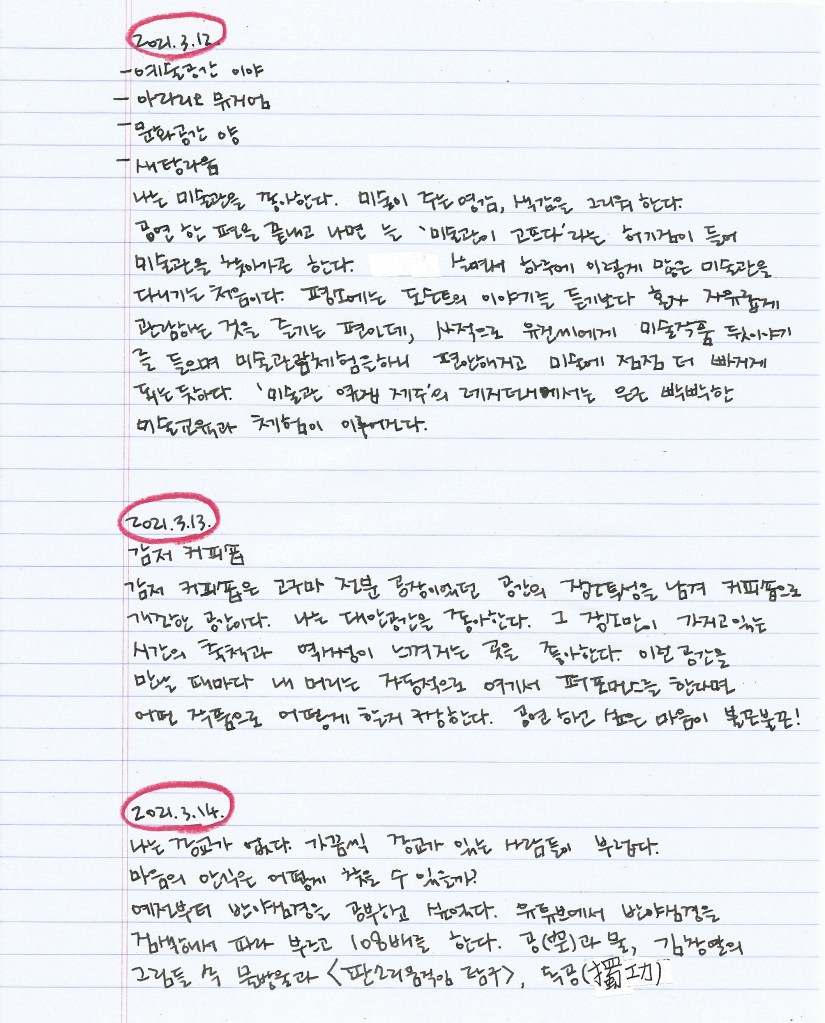 2021.3.12.
- 예술공간 이아
- 아라리오 뮤지엄
- 문화공간 양
- 새탕라움
나는 미술관을 좋아한다. 미술이 주는 영감, 색감을 그리워 한다.
공연 한 편을 끝내고 나면 늘 '미술관이 고프다'라는 허기짐이 들어
미술관을 찾아가곤 한다. 살면서 한국에 이렇게 많은 미술관을
다니기는 처음이다. 평소에는 도슨트의 이야기를 듣기보다 혼자 자유롭게
관람하는 것을 즐기는 편인데, 사적으로 유진씨에게 미술작품 뒷이야기
를 들으며 미술관람체험을하니 편안해지고 미술에 점점 더 빠지게
되는 듯하다. '미술관 옆집 제주'의 레지던내에서는 은근 빡빡한
미술교육과 체험이 이루어진다.
2021.3.13.
감저 커피숍
감저 커피숍은 고구마 전분 공장이었던 공간의 장소특성을 남겨 커피숍으로
개간한 공간이다. 나는 대안공간을 좋아한다. 그 장소만이 가지고있는
시간의 축적과 역사성이 느껴지는 곳을 좋아한다. 이런 공간을
만날 때마다 내 머리는 자동적으로 여기서 퍼포먼스를 한다면
어떤 작품으로 어떻게 할지 상상한다. 공연 하고 싶은 마음이 불끈불끈!
2021.3.14.
나는 종교가 없다. 가끔씩 종교가 있는 사람들이 부럽다.
마음의 안식은 어떻게 찾을 수 있을까?
예전부터 반야심경을 공부하고 싶었다. 유튜브에서 반야심경을
검색해서 따라 부르고 108배를 한다. 공(空)과 물, 김창열의
그림들 속 물방울과 <판소리움직임 탐구>, 독공(獨功)